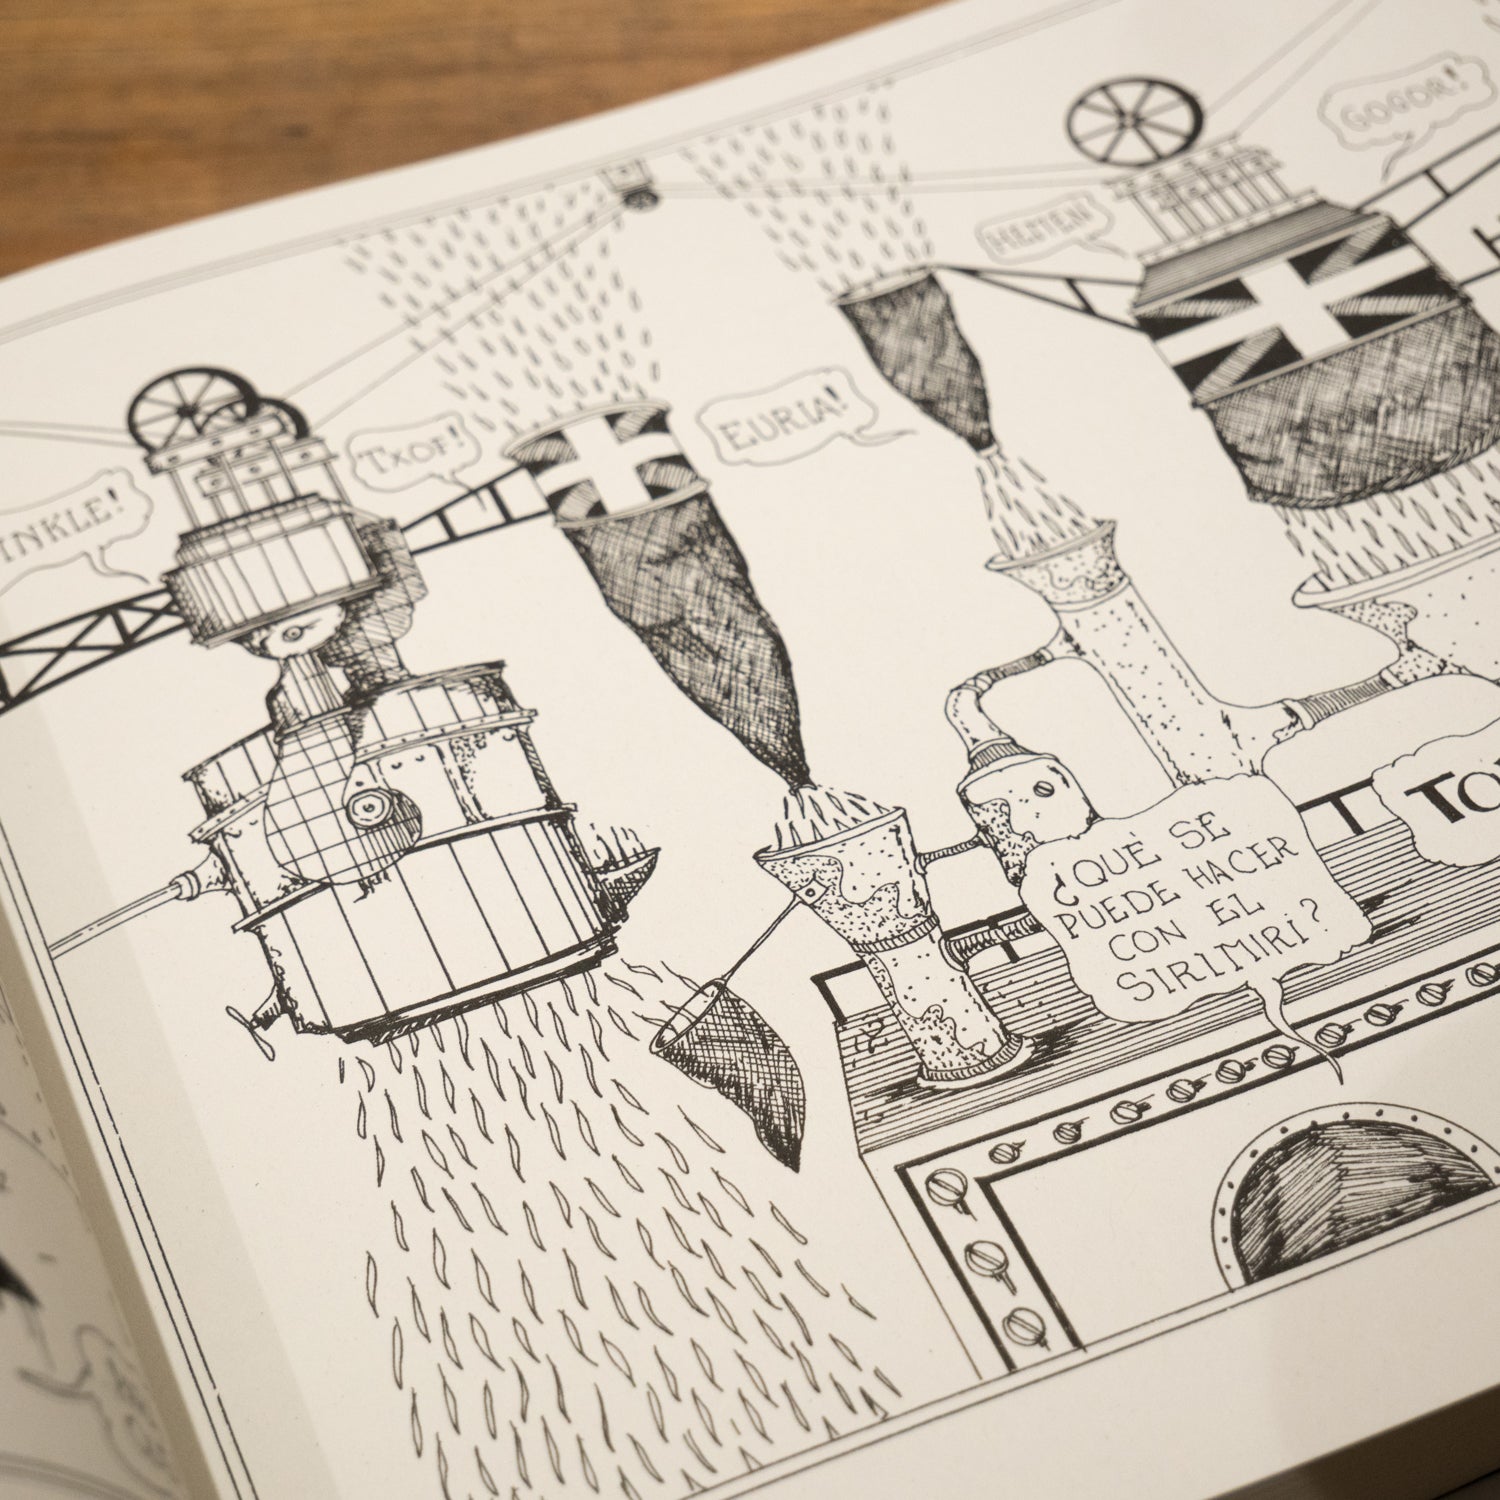 GOGOR!
HEMEN!
TXOF!
EURIA!
INKLE!
TO
¿QUÉ SE
PUEDE HACER
CON EL
SIRIMIRI?